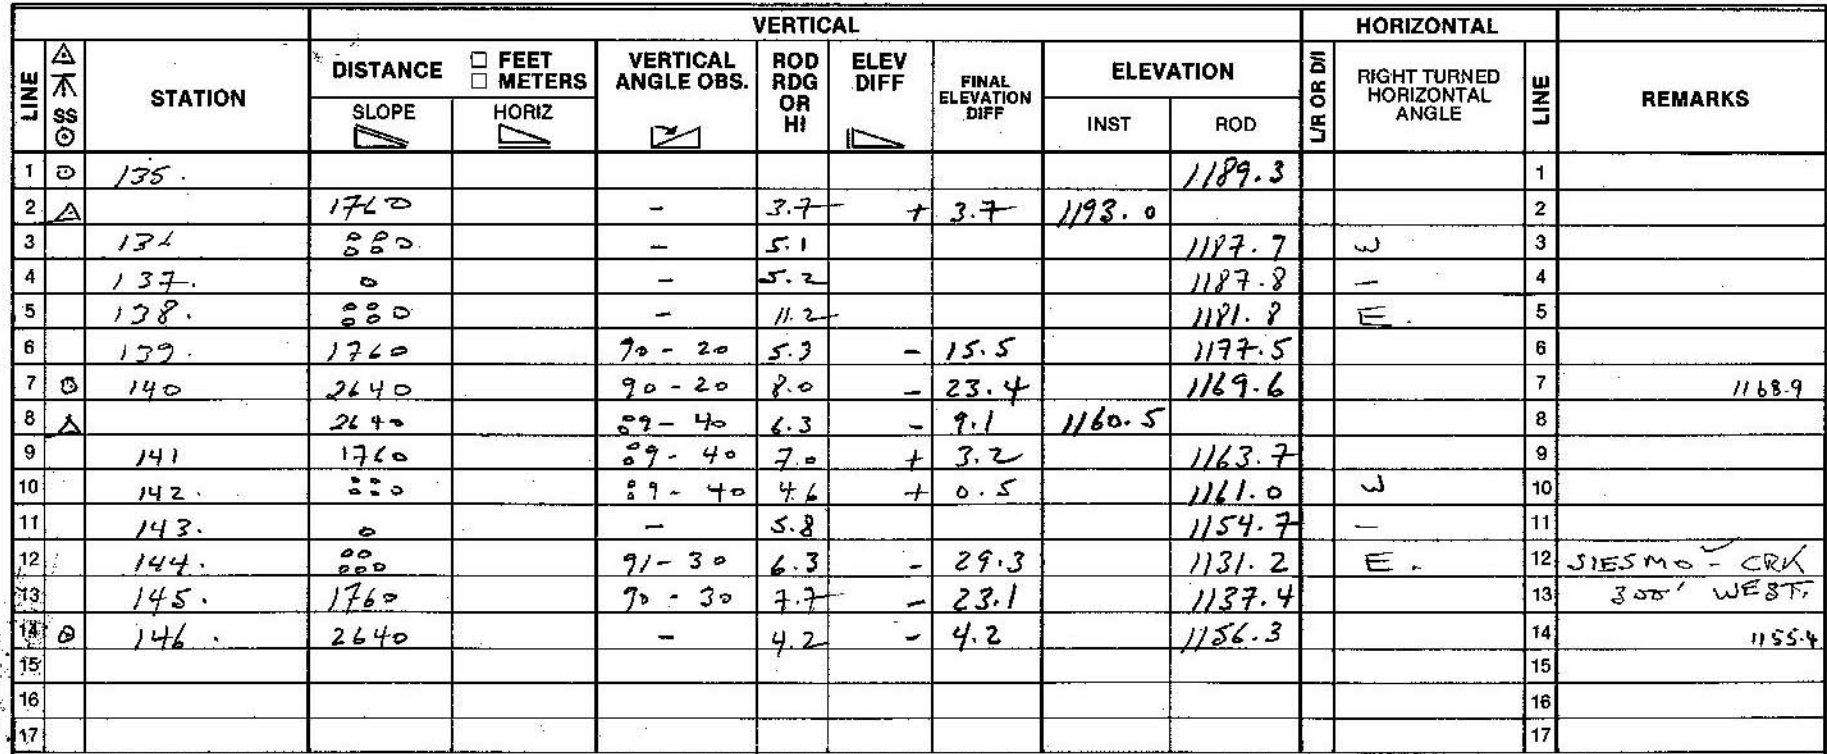 VERTICAL HORIZONTAL
LINE SS STATION DISTANCE □ FEET □ METERS SLOPE HORIZ VERTICAL ANGLE OBS. ROD RDG OR HI ELEV DIFF FINAL ELEVATION DIFF ELEVATION INST ROD L/R OR D/I RIGHT TURNED HORIZONTAL ANGLE LINE REMARKS
1 135. 1189.3 1
2 1760 - 3.7 + 3.7 1193.0 2
3 136 880 - 5.1 1187.7 W 3
4 137. 0 - 5.2 1187.8 - 4
5 138. 880 - 11.2 1181.8 E. 5
6 139. 1760 90-20 5.3 - 15.5 1177.5 6
7 140 2640 90-20 8.0 - 23.4 1169.6 7 1168.9
8 2640 89-40 6.3 - 9.1 1160.5 8
9 141 1760 89-40 7.0 + 3.2 1163.7 9
10 142. 880 89-40 4.6 + 0.5 1161.0 W 10
11 143. 0 - 5.8 1154.7 - 11
12 144. 880 91-30 6.3 - 29.3 1131.2 E. 12 SIESMO - CRK
13 145. 1760 90-30 7.7 - 23.1 1137.4 13 300' WEST.
14 146. 2640 - 4.2 - 4.2 1156.3 14 1155.4
15 15
16 16
17 17